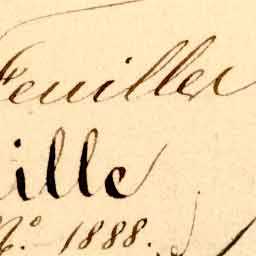 Feuilles
ille
N.º 1888.